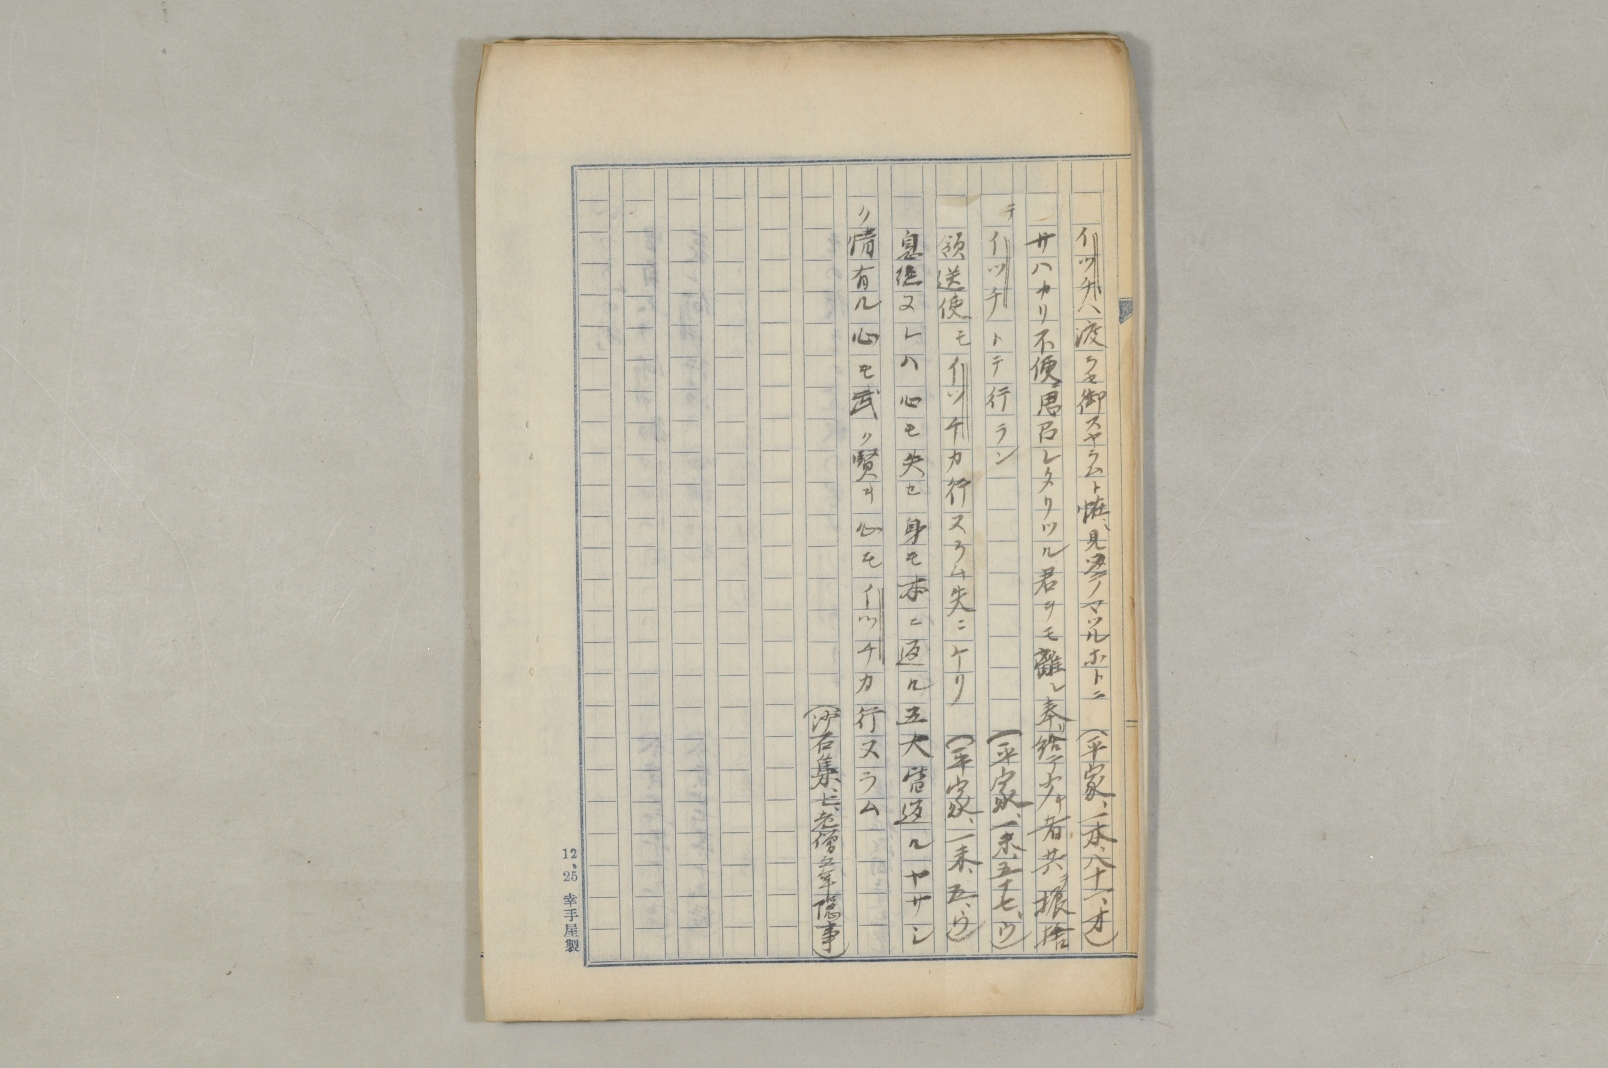 イツチヘ渡ラセ御スヤラムト怪、見奉マツルホトニ (平家、一本、八十一、オ)
サハカリ不便思召レタリツル君ヲモ離レ奉給テ少キ者共ヲ振捨
テイツチトテ行ラン (平家、一末、五十七、ウ)
領送使モイツチカ行スラム失ニケリ (平家、一末、五、ウ)
息絶ヌレハ心モ失セ身モ本ニ返ル五大皆返ルヤサシ
ク情有ル心モ武ク賢キ心モイツチカ行ヌラム
(沙石集、七、老僧之年隠事)
12、25 幸手屋製